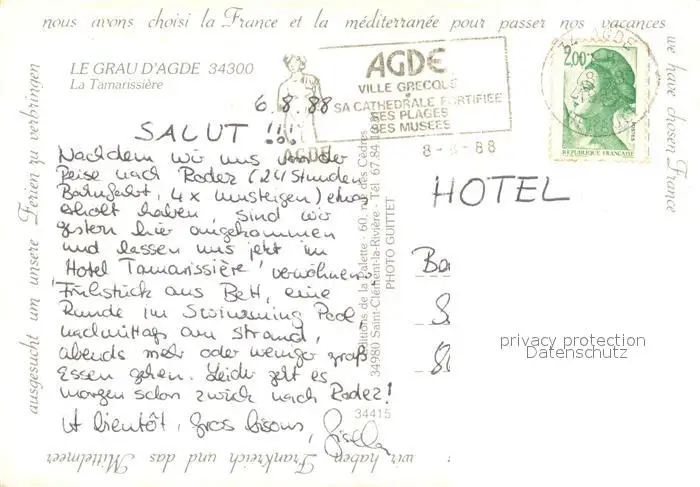 nous avons choisi la France et la méditerranée pour passer nos vacances
we have chosen France
ausgesucht um unsere Ferien zu verbringen
wir haben Frankreich und das Mittelmeer
LE GRAU D'AGDE 34300
La Tamarissière
AGDE
VILLE GRECQUE
SA CATHEDRALE FORTIFIEE
SES PLAGES
SES MUSEES
AGDE
8-8-88
AGDE
2,00
REPUBLIQUE FRANÇAISE
6.8.88
SALUT !!!
Nachdem wir uns von der
Reise nach Rodez (24 Stunden
Bahnfahrt, 4x Umsteigen) etwas
erholt haben, sind wir
gestern hier angekommen
und lassen uns jetzt im
'Hotel Tamarissière' verwöhnen:
Frühstück aus Bett, eine
Runde im Swimming Pool,
nachmittags am Strand,
abends mehr oder weniger groß
Essen gehen. Leider geht es
morgen schon zurück nach Rodez!
A bientôt, gros bisous, Gisella
Editions de la Palette - 60, rue des Cèdres
34980 Saint-Clément-la-Rivière - Tél. 67.84
PHOTO GUITTET
34415
HOTEL
Ba
S
privacy protection
Datenschutz